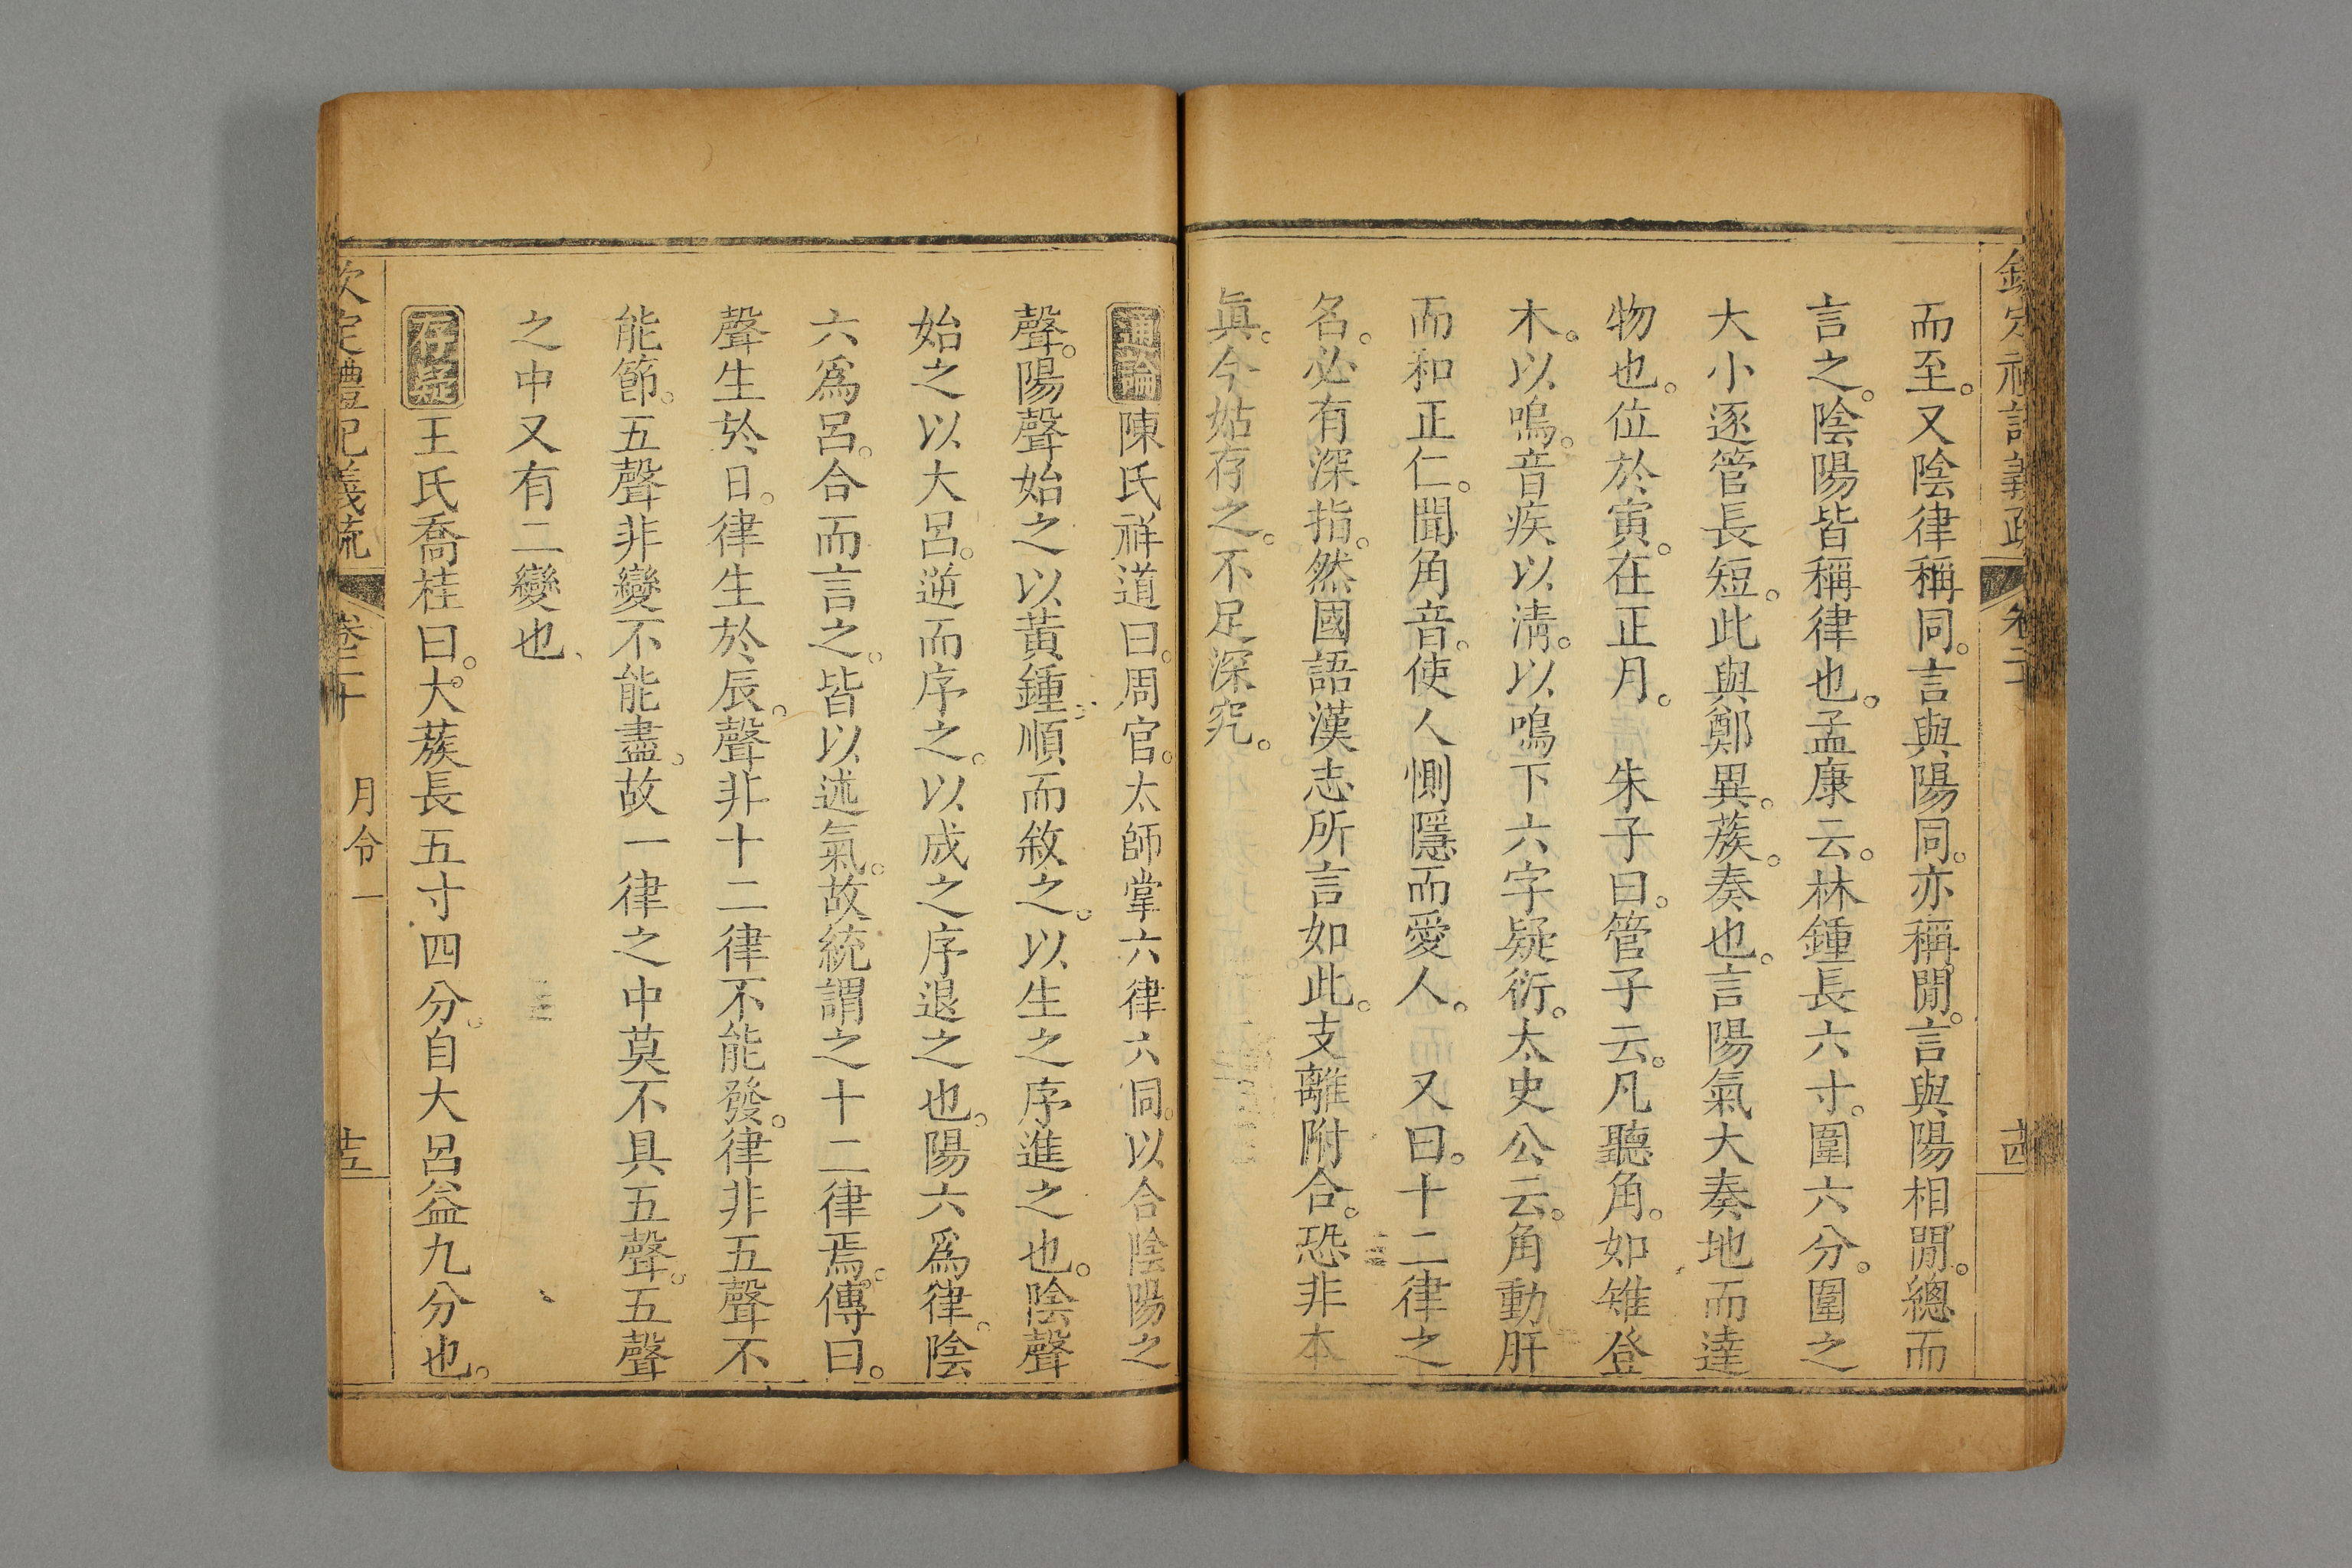 欽定禮記義疏 卷二十 十四
而至。又陰律稱同。言與陽同。亦稱閒。言與陽相閒。總而
言之。陰陽皆稱律也。孟康云。林鍾長六寸。圍六分。圍之
大小逐管長短。此與鄭異。蔟。奏也。言陽氣大奏地而達
物也。位於寅。在正月。 朱子曰。管子云。凡聽角。如雉登
木。以鳴。音疾以淸。以鳴下六字疑衍。太史公云。角動肝
而和正仁。聞角音。使人惻隱而愛人。 又曰。十二律之
名。必有深指。然國語漢志所言如此。支離附合。恐非本
眞。今姑存之。不足深究。
通論 陳氏祥道曰。周官。太師掌六律六同。以合陰陽之
聲。陽聲始之以黃鍾順而敘之。以生之序進之也。陰聲
始之以大呂。逆而序之。以成之序退之也。陽六爲律。陰
六爲呂。合而言之。皆以述氣。故統謂之十二律焉。傳曰。
聲生於日。律生於辰。聲非十二律不能發。律非五聲不
能節。五聲非變不能盡。故一律之中莫不具五聲。五聲
之中又有二變也
存疑 王氏喬桂曰。大蔟長五寸四分。自大呂益九分也。
欽定禮記義疏 卷二十 月令一 十五